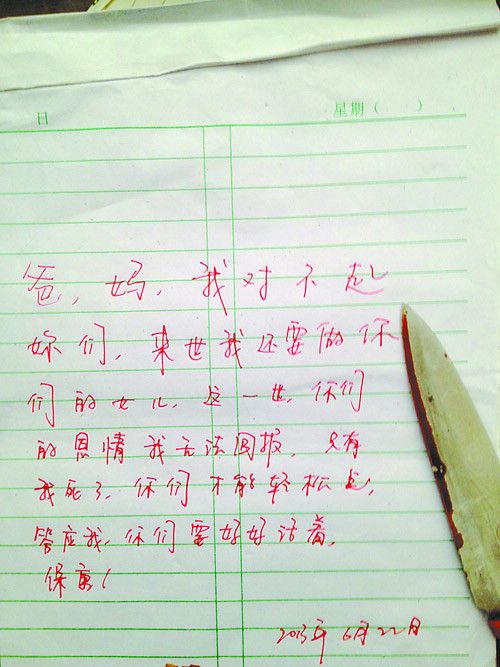 日 星期( )
爸，妈，我对不起
妳们，来世我还要做你
们的女儿，这一世，你们
的恩情我无法回报，只有
我死了，你们才能轻松点，
答应我，你们要好好活着，
保重！
2013年6月22日